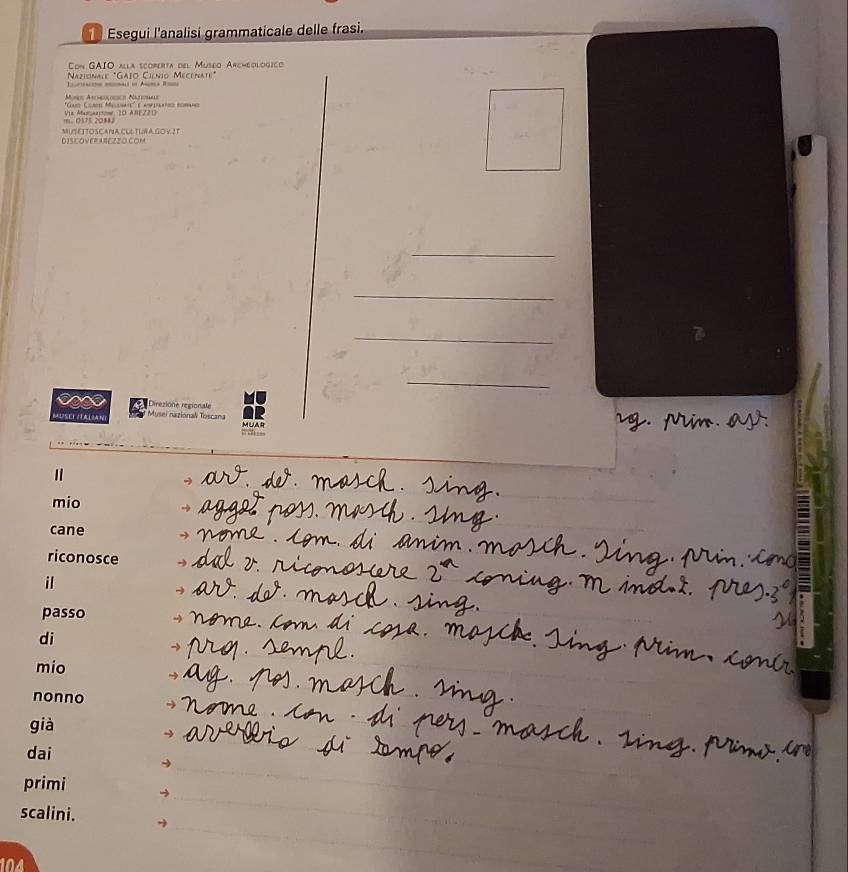 1 Esegui l'analisi grammaticale delle frasi.
Con GAIO alla scoperta del Museo Archeologico
Nazionale "Gaio Cilnio Mecenate"
Museo Archeologico Nazionale
"Gaio Cilnio Mecenate" e anfiteatro romano
Via Margaritone, 10 AREZZO
tel. 0575 20882
MUSEITOSCANA.CULTURA.GOV.IT
DISCOVERAREZZO.COM
MUSEI ITALIANI
Direzione regionale
Musei nazionali Toscana
MU
AR
MUAR
ng. prim. ast.
Il → art. det. masch. sing.
mio → agget poss. masch. sing.
cane → nome. com. di anim. masch. sing. prim. conc
riconosce → dal v. riconoscere 2ª coniug. m indat. pres. 3ª
il → art. det. masch. sing.
passo → nome. com. di cosa. masch. sing. prim. concr
di → pre. sempl.
mio → ag. pos. masch. sing.
nonno → nome. con. di pers. masch. sing. prim. con
già → averbio di tempo.
dai →
primi →
scalini. →
104